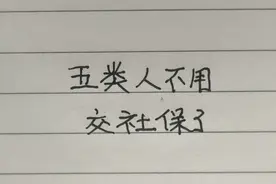 五类人不用
交社保了